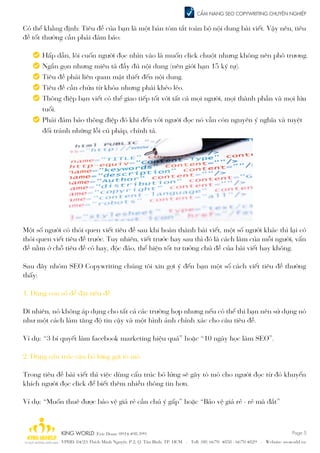 CẨM NANG SEO COPYWRITING CHUYÊN NGHIỆP
Có thể khẳng định: Tiêu đề của bạn là một bản tóm tắt toàn bộ nội dung bài viết. Vậy nên, tiêu
đề tốt thường cần phải đảm bảo:
Hấp dẫn, lôi cuốn người đọc nhìn vào là muốn click chuột nhưng không nên phô trương.
Ngắn gọn nhưng miêu tả đầy đủ nội dung (nên giới hạn 15 ký tự).
Tiêu đề phải liên quan mật thiết đến nội dung.
Tiêu đề cần chứa từ khóa nhưng phải khéo léo.
Thông điệp bạn viết có thể giao tiếp tốt với tất cả mọi người, mọi thành phần và mọi lứa
tuổi.
Phải đảm bảo thông điệp đó khi đến với người đọc nó vẫn còn nguyên ý nghĩa và tuyệt
đối tránh những lỗi cú pháp, chính tả.
Một số người có thói quen viết tiêu đề sau khi hoàn thành bài viết, một số người khác thì lại có
thói quen viết tiêu đề trước. Tuy nhiên, viết trước hay sau thì đó là cách làm của mỗi người, vấn
đề nằm ở chỗ tiêu đề có hay, độc đáo, thể hiện rõ tư tưởng chủ đề của bài viết hay không.
Sau đây nhóm SEO Copywriting chúng tôi xin gợi ý đến bạn một số cách viết tiêu đề thường
thấy:
1. Dùng con số để đặt tiêu đề
Dĩ nhiên, nó không áp dụng cho tất cả các trường hợp nhưng nếu có thể thì bạn nên sử dụng nó
như một cách làm tăng độ tin cậy và một hình ảnh chính xác cho câu tiêu đề.
Ví dụ: “3 bí quyết làm facebook marketing hiệu quả” hoặc “10 ngày học làm SEO”.
2. Dùng cấu trúc câu bỏ lửng gợi tò mò
Trong tiêu đề bài viết thì việc dùng cấu trúc bỏ lửng sẽ gây tò mò cho người đọc từ đó khuyến
khích người đọc click để biết thêm nhiều thông tin hơn.
Ví dụ: “Muốn thuê được bảo vệ giá rẻ cần chú ý gấp” hoặc “Bảo vệ giá rẻ - rẻ mà đắt”
KING WORLD
Page 5